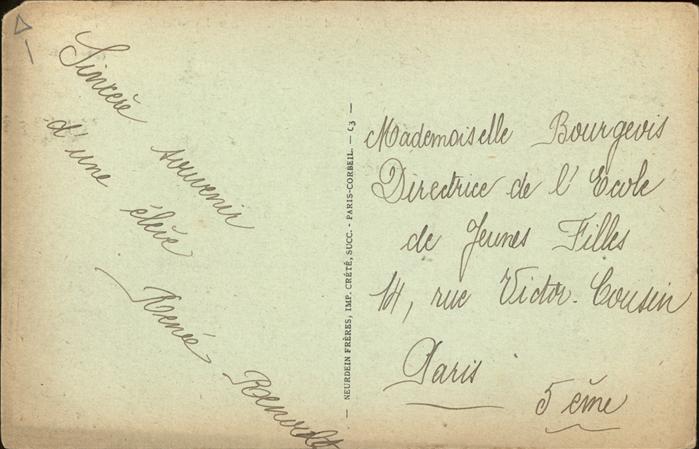 Sincère souvenir
d'une élève
Renée
— NEURDEIN FRÈRES, IMP. CRÉTÉ, SUCC. - PARIS-CORBEIL. — C3 —
Mademoiselle Bourgevis
Directrice de l'Ecole
de Jeunes Filles
14, rue Victor-Cousin
Paris
5ème